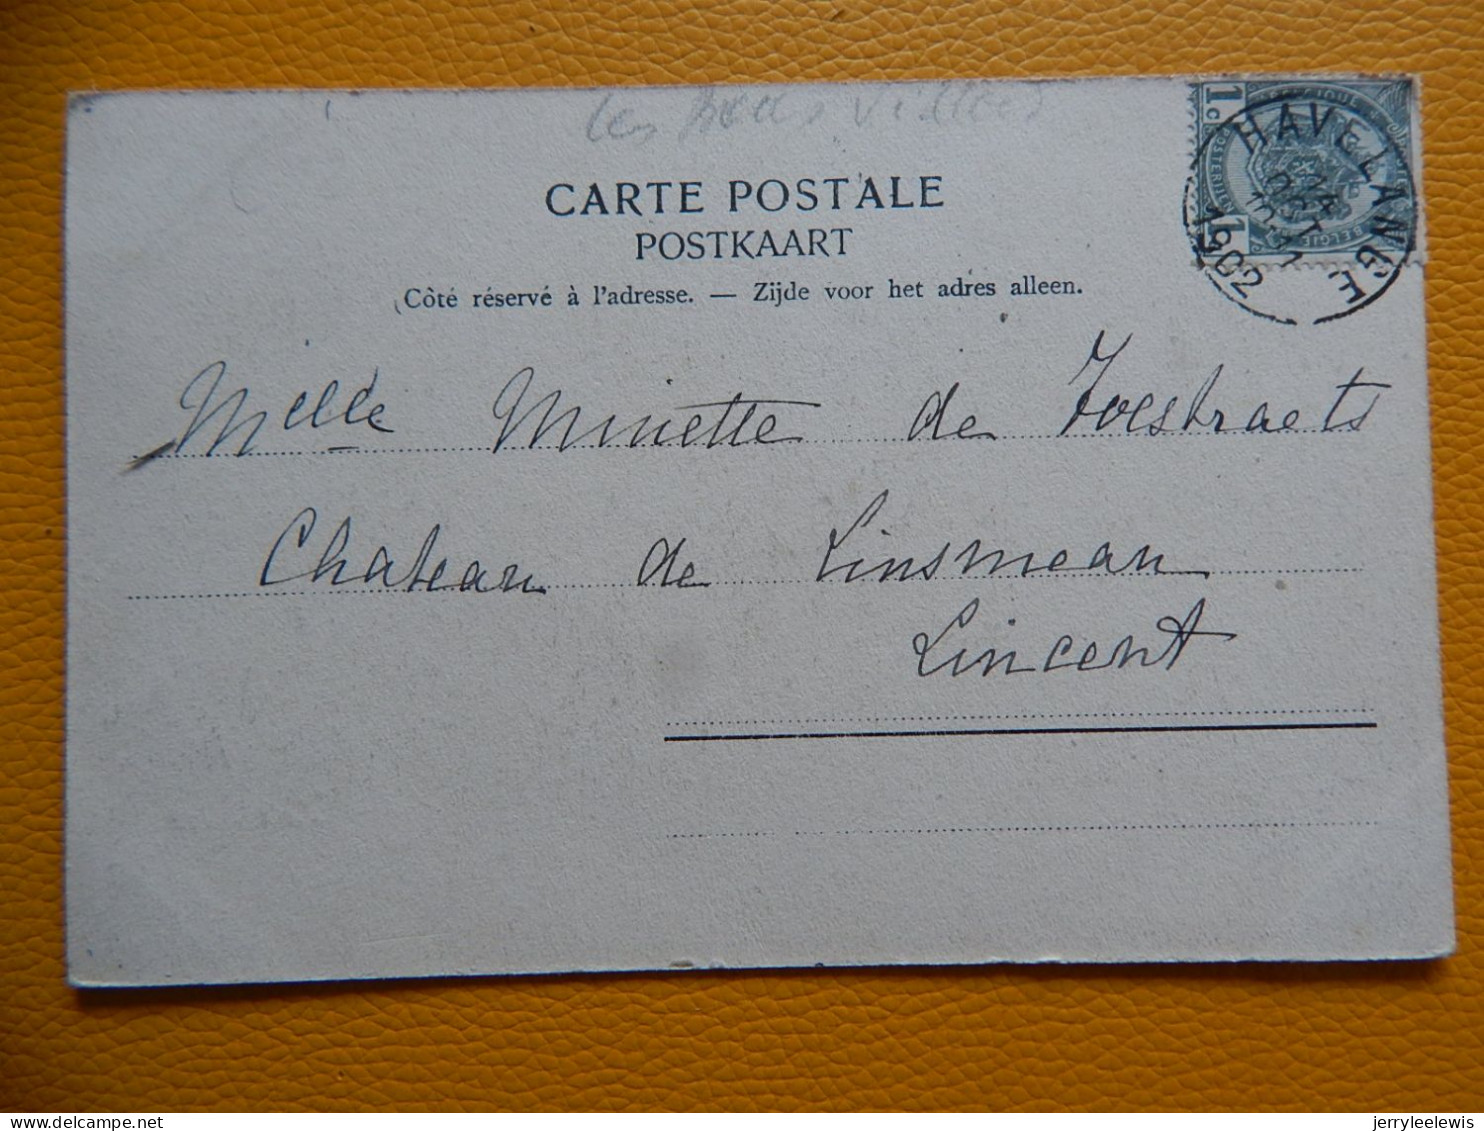 les vieilles
CARTE POSTALE
POSTKAART
(Côté réservé à l'adresse. — Zijde voor het adres alleen.
1c
BELGIQUE
POSTERIJEN
BELGIE
1c
HAVELANGE
24
OCT
10-11
1902
Melle Minette de Joestraets
Chateau de Linsmeau
Lincent
jerryleelewis